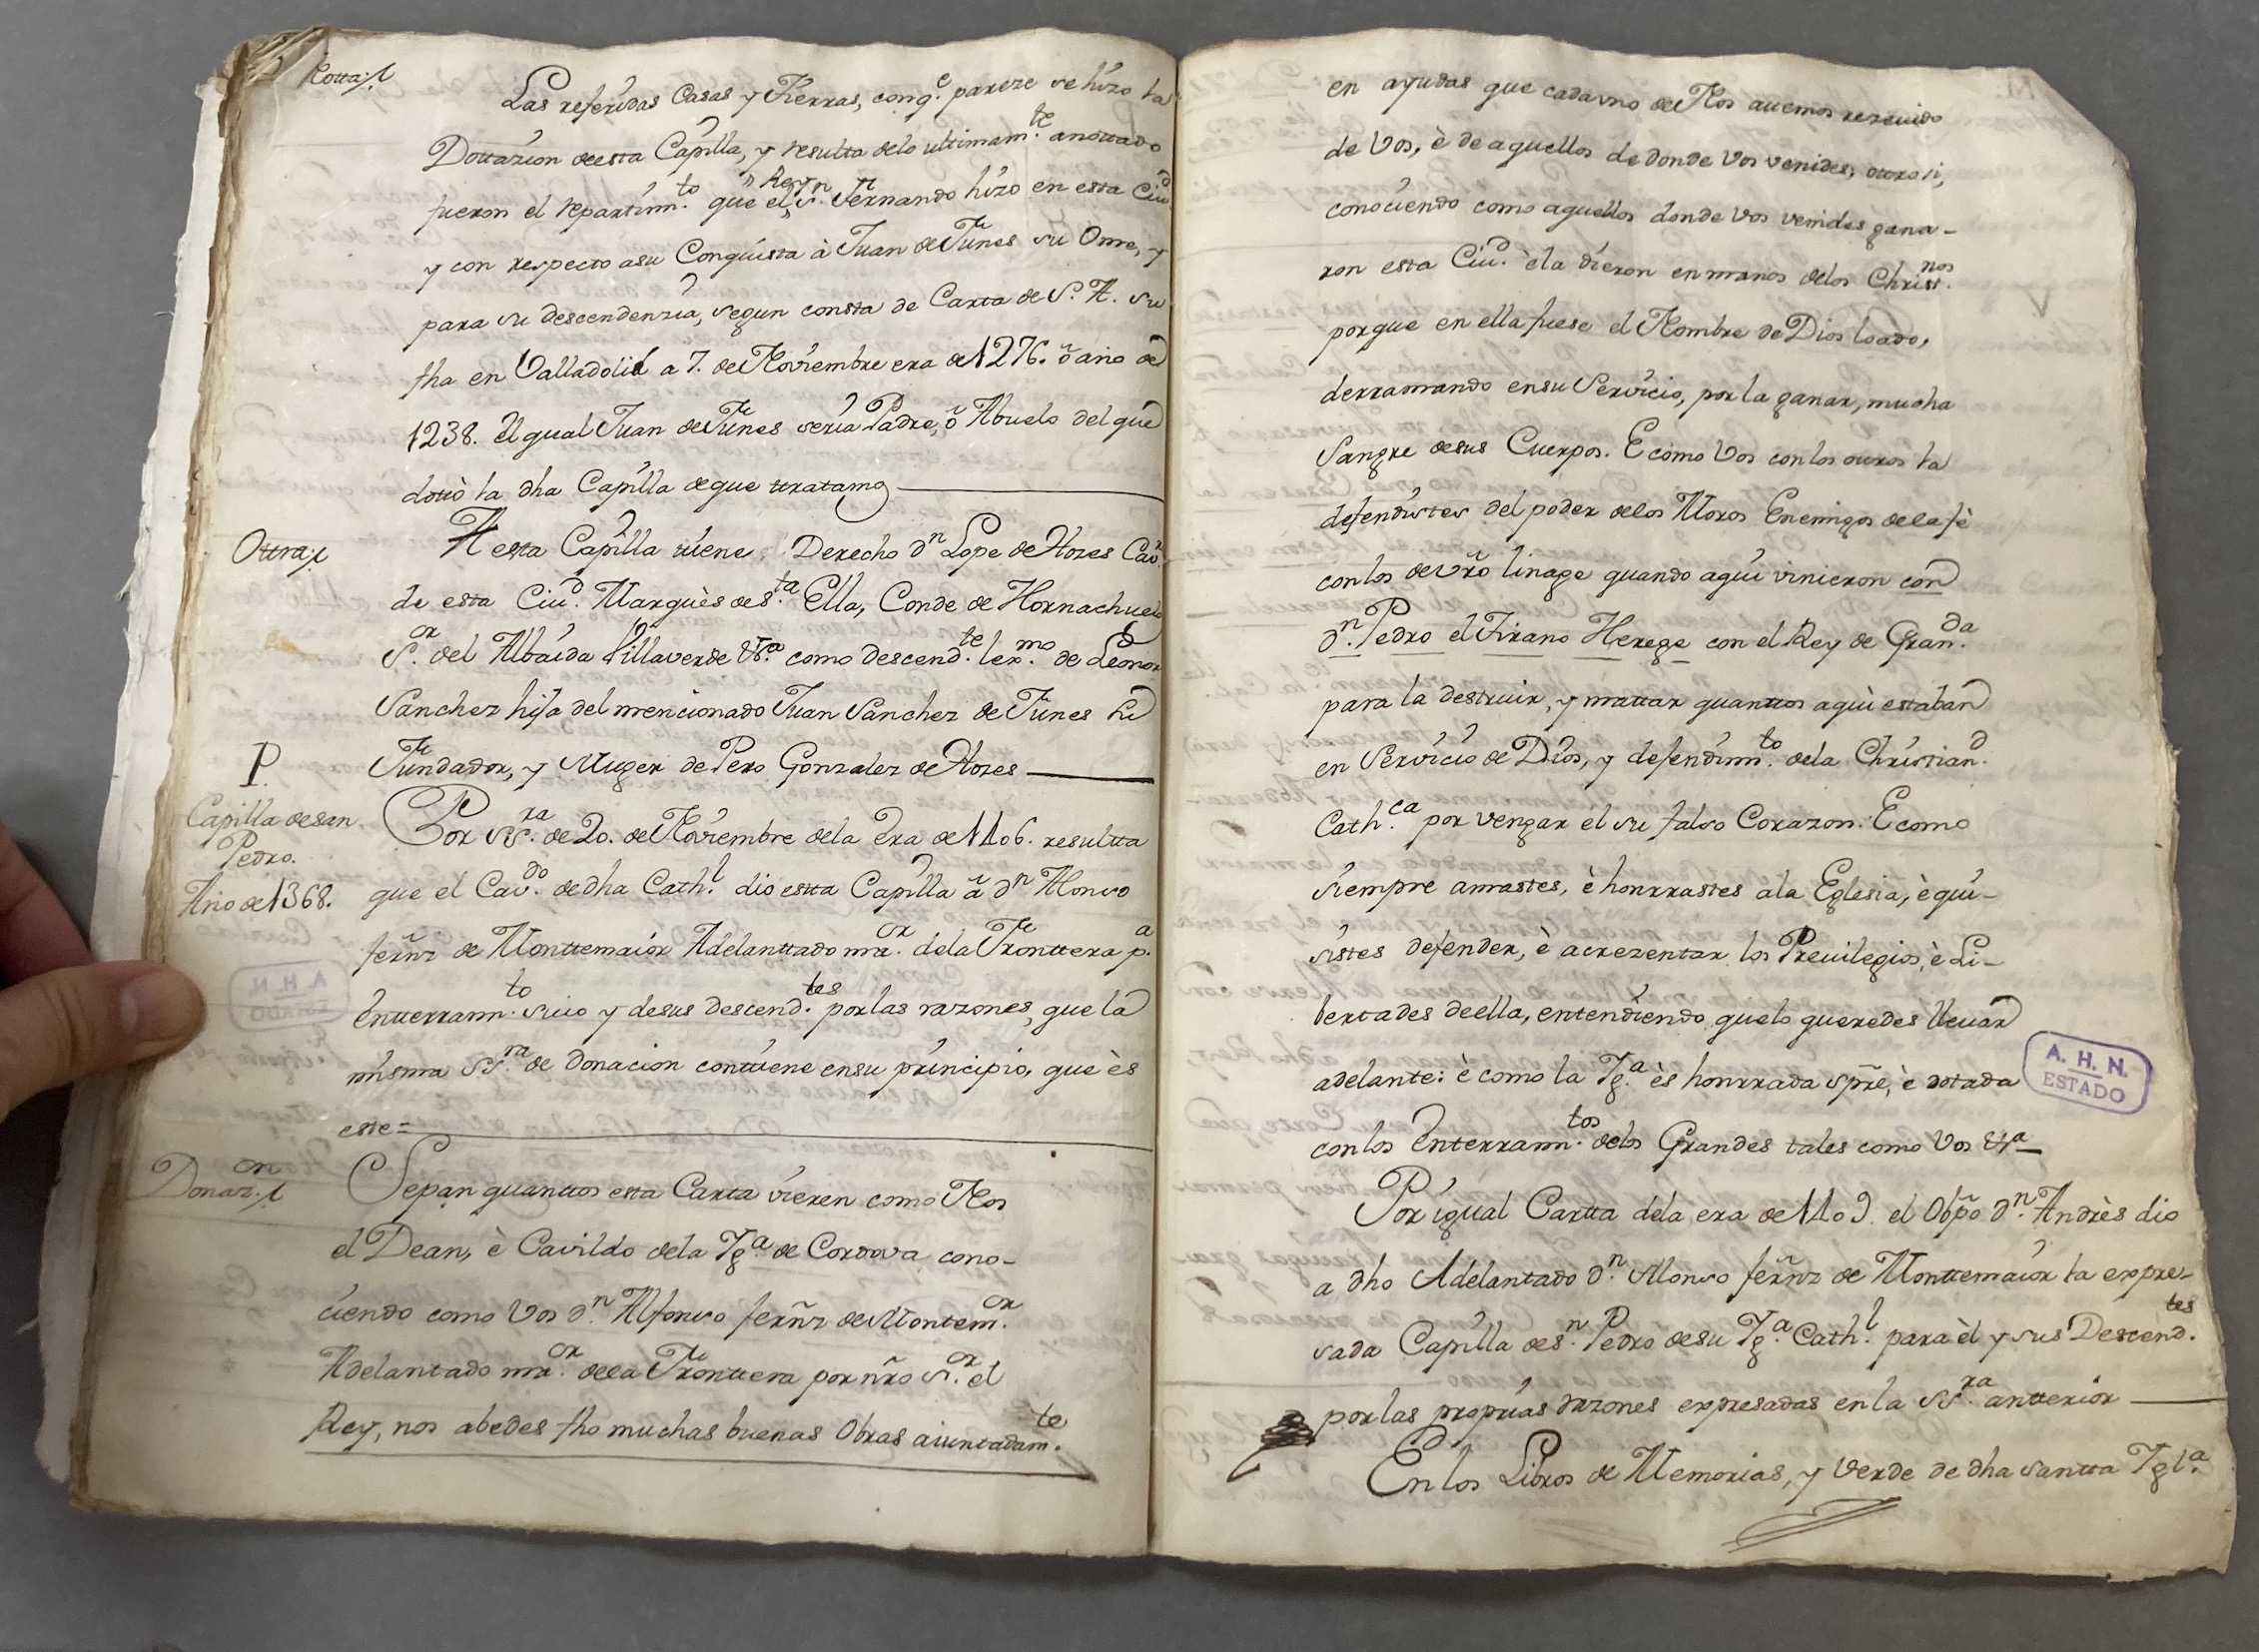 Notta
Las referidas Casas y Tierras, conq.e pareze se hizo la
Dottazion deesta Capilla, y resulta delo ultimam.te anottado
fueron el repartim.to que el Rey S.n Fernando hizo en esta Ciu.d
y con respecto asu Conquista à Juan de Funes su Ome, y
para su descendenzia, segun consta de Carta de S. A. su
fha en Valladolid a 7. de Noviembre era de 1276. ò año de
1238. El qual Juan de Funes seria Padre, ò Abuelo del que
dottò la dha Capilla deque trattamos
Ottra
A esta Capilla tiene Derecho d.n Lope de Hozes Cav.o
de esta Ciu.d Marquès de S.ta Ella, Conde de Hornachuelos
S.or del Albaida Villaverde &.a como descend.te lex.mo de Leonor
Sanchez hija del mencionado Juan Sanchez de Funes su
Fundador, y Muger de Pero Gonzalez de Hozes
P.
Capilla de san
Pedro.
Año de 1368.
Por ss.ra de 20. de Noviembre dela Era de 1406. resultta
que el Cav.do de dha Cath.l dio estta Capilla à d.n Alonso
ferñz de Monttemaior Adelanttado ma.or dela Fronttera p.a
Entterram.to suio y desus descend.tes por las razones, que la
misma ss.ra de donacion conttiene ensu principio, que ès
este=
Donaz.on
Sepan quanttos esta Carta vieren como Nos
el Dean, è Cavildo dela Ig.a de Cordova cono-
ciendo como Vos d.n Alfonso ferñz de Montem.or
Adelantado ma.or dela Fronttera por nr̃o s.or el
Rey, nos abedes fho muchas buenas Obras aiuntadam.te
en ayudas que cadauno de Nos auemos rezeuido
de Vos, è de aquellos de donde Vos venides, otrosi,
conociendo como aquellos donde Vos venides gana-
ron esta Ciu.d è la dieron en manos delos Christ.nos
porque en ella fuese el Nombre de Dios loado,
derramando ensu Servicio, por la ganar, mucha
Sangre desus Cuerpos. E como Vos con los otros la
defendistes del poder delos Moros Enemigos dela fè
con los de vr̃o linage quando aqui vinieron con
d.n Pedro el Tirano Herege con el Rey de Gran.da
para la destruir, y mattar quanttos aqui estaban
en Servicio de Dios, y defendim.to dela Christian.d
Cath.ca por vengar el su falso Corazon. E como
siempre amastes, è honrrastes ala Eglesia, è qui-
sistes defender, è acrezentar los Preuilegios, è Li-
bertades deella, entendiendo quelo queredes lleuar
adelante: è como la Ig.a ès honrrada spr̃e, è dotada
con los Enterram.tos delos Grandes tales como Vos &.a
Por igual Cartta dela era de 1409. el Obp̃o d.n Andrès dio
a dho Adelantado d.n Alonso ferñz de Monttemaior la expre-
sada Capilla de S.n Pedro desu Ig.a Cath.l para èl y sus Descend.tes
por las proprias razones expresadas en la ss.ra antterior
En los Libros de Memorias, y Verde de dha santta Igl.a
A. H. N.
ESTADO